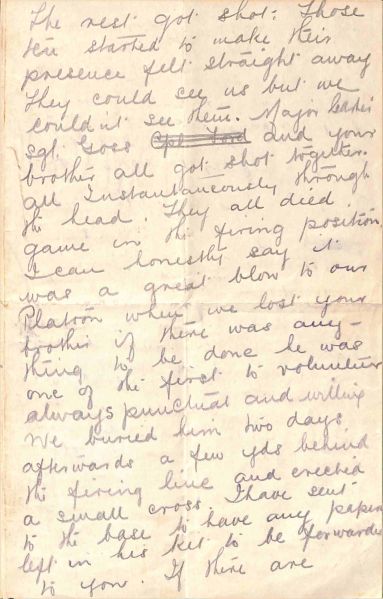 The rest got shot. Those
ten started to make their
presence felt straight away
They could see us but we
could'nt see them. Major
sgt. Goss Cpl Ford and your
brother all got shot together.
all Instantaneously through
the head. They all died
game in the firing position.
I can honestly say it
was a great blow to our
Platoon when we lost your
brother if there was any-
thing to be done he was
one of the first to volunteer
always punctual and willing
We buried him two days
afterwards a few yds behind
the firing line and erected
a small cross. I have sent
to the base to have any papers
left in his kit to be forwarded
to you. If there are